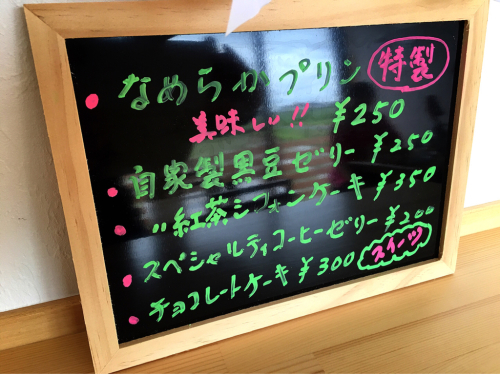 • なめらかプリン 特製
美味しい!! ¥250
• 自家製黒豆ゼリー ¥250
• 〃紅茶シフォンケーキ ¥350
• スペシャルティコーヒーゼリー ¥200
• チョコレートケーキ ¥300 スイーツ